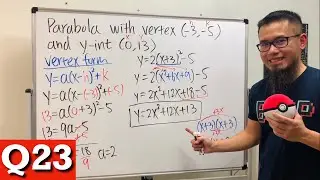 Parabola with vertex (-3,-5)
and y-int (0,13)
vertex form
y=a(x-h)²+k
y=a(x-(-3))²+(-5)
13=a(0+3)²-5
13=9a-5
18
9
a=2
y=2(x+3)²-5
y=2(x²+6x+9)-5
y=2x²+12x+18-5
y=2x²+12x+13
(x+3)(x+3)
Q23